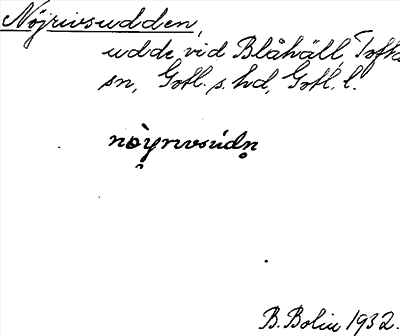 Nöjrivsudden,
udde vid Blåhäll, Tofta
sn, Gotl. s. hd, Gotl. l.
nòyrıvsúdn̥
B. Bolin 1932.